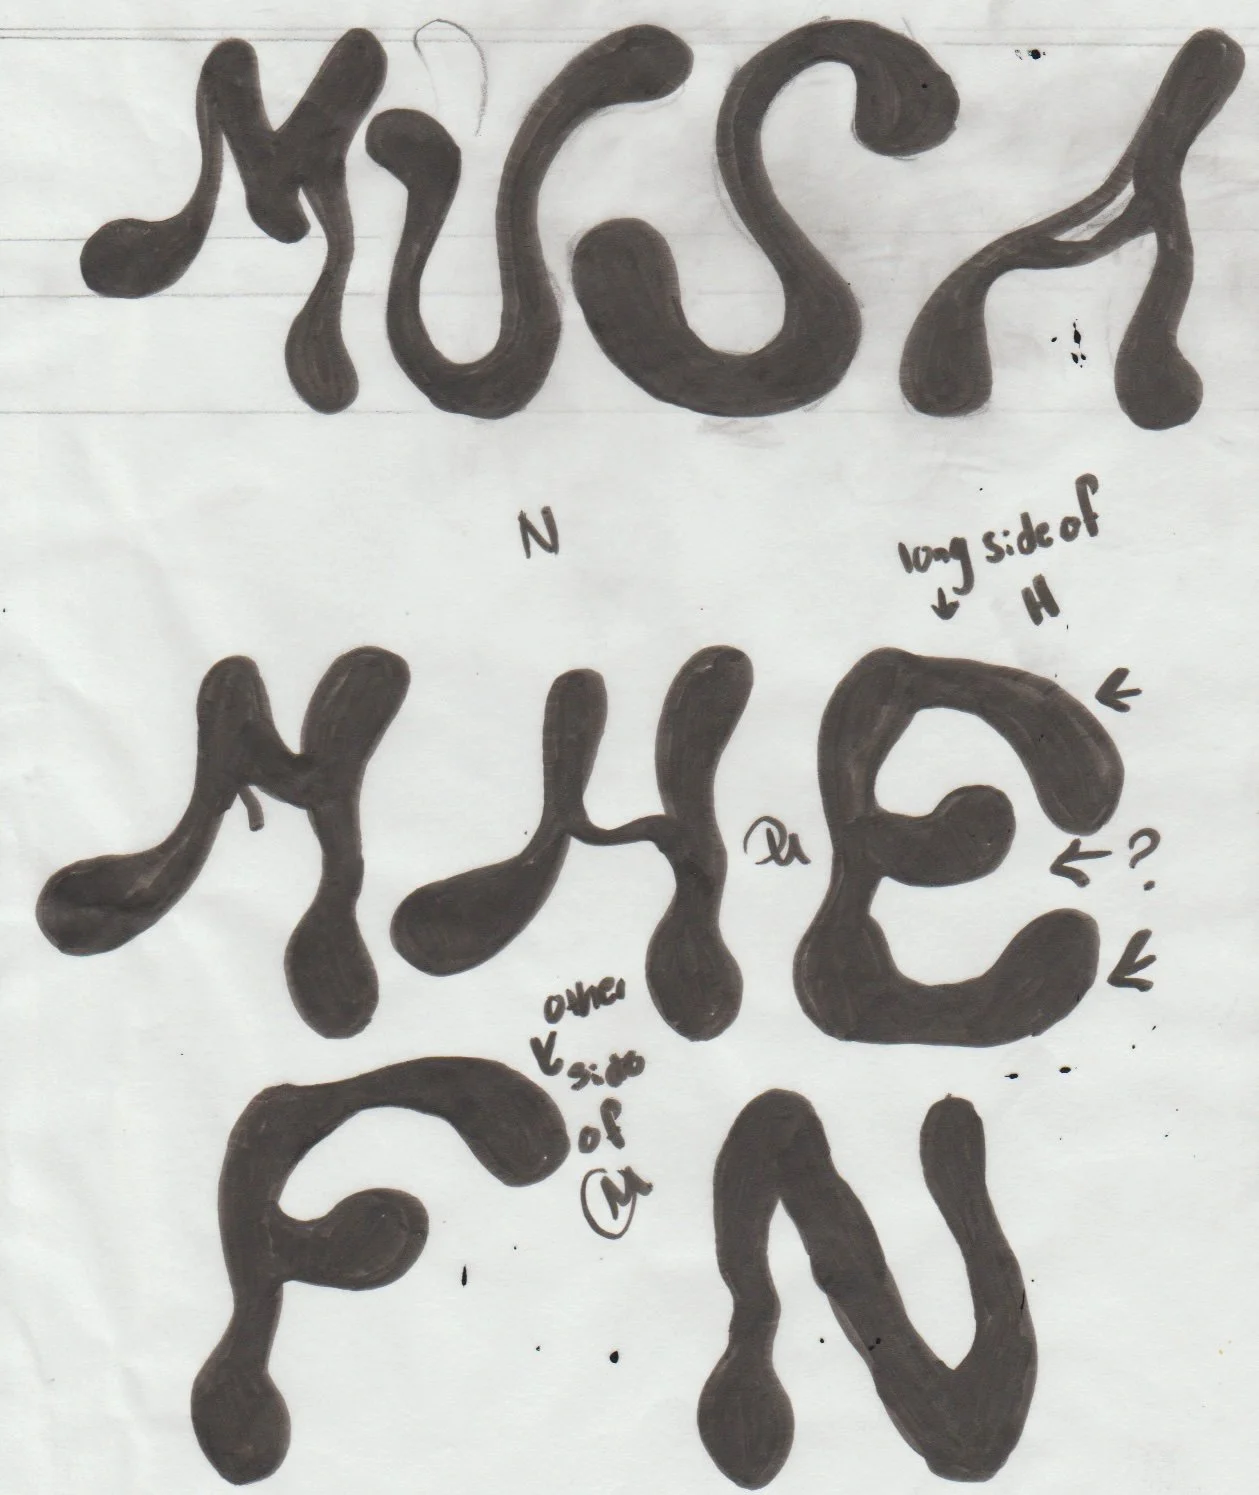 MUSA
N
long side of
↓ H
MHE
← ?
other
↓ side
of
M
FN